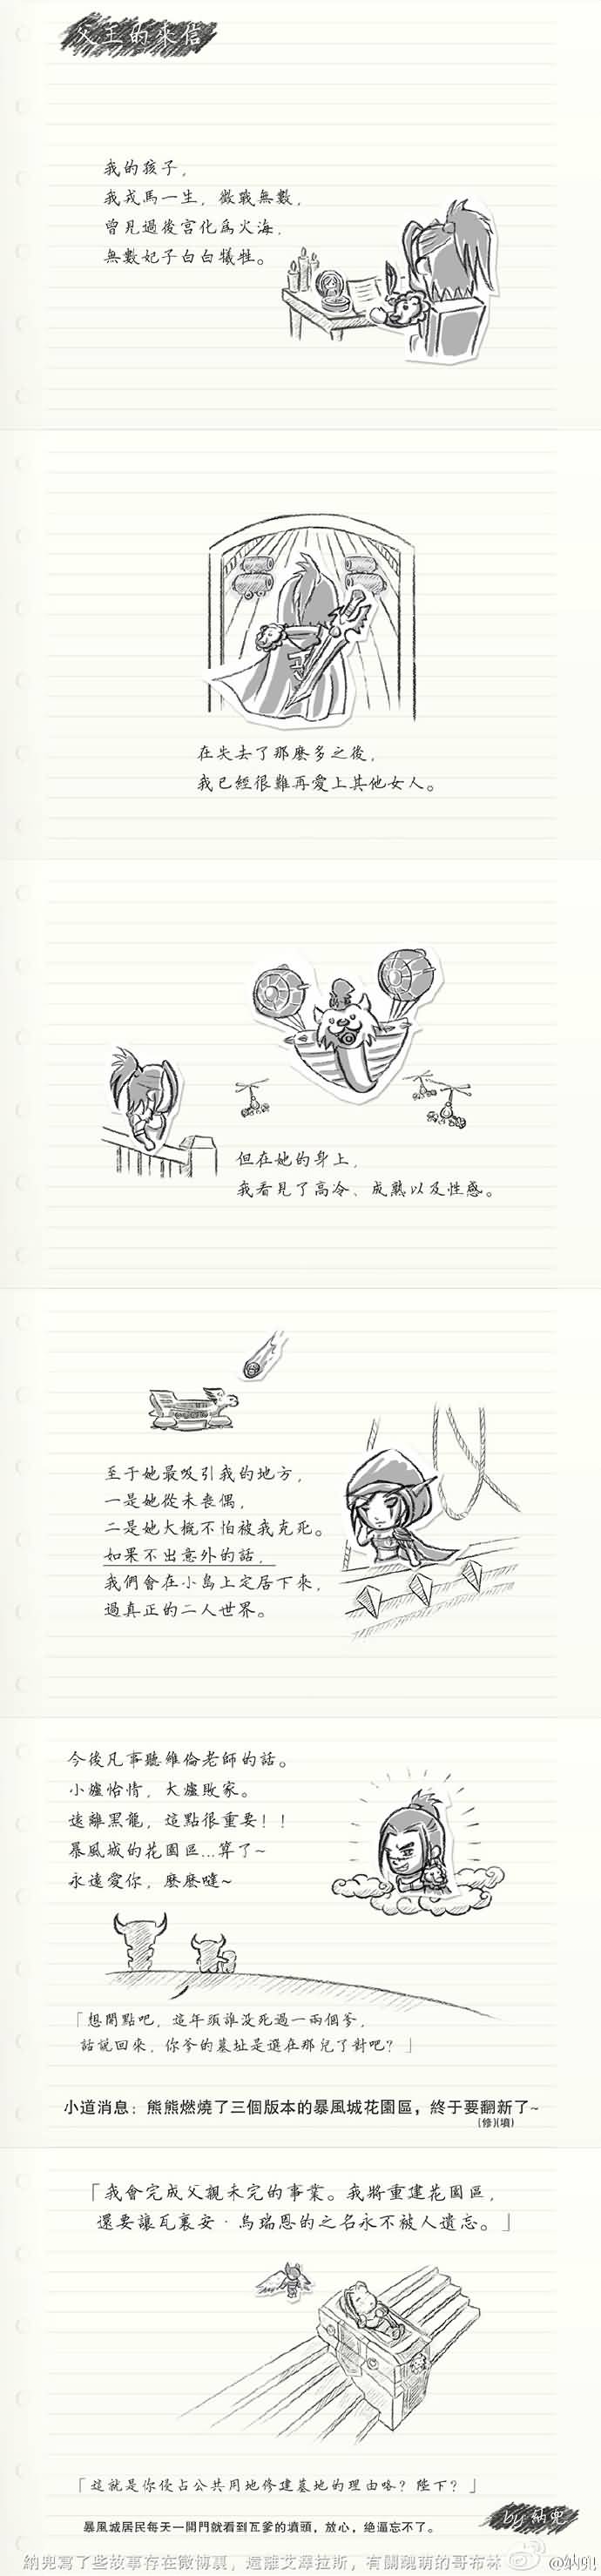 父王的來信
我的孩子，
我戎馬一生，徵戰無數，
曾見過後宮化為火海，
無數妃子白白犧牲。
在失去了那麼多之後，
我已經很難再愛上其他女人。
但在她的身上，
我看見了高冷、成熟以及性感。
至于她最吸引我的地方，
一是她從未喪偶，
二是她大概不怕被我克死。
如果不出意外的話，
我們會在小島上定居下來，
過真正的二人世界。
今後凡事聽維倫老師的話。
小爐怡情，大爐敗家。
遠離黑龍，這點很重要！！
暴風城的花園區...算了~
永遠愛你，麼麼噠~
「想開點吧，這年頭誰沒死過一兩個爹，
話說回來，你爹的墓址是選在那兒了對吧？」
小道消息：熊熊燃燒了三個版本的暴風城花園區，終于要翻新了~
(修)(墳)
「我會完成父親未完的事業。我將重建花園區，
還要讓瓦裏安·烏瑞恩的之名永不被人遺忘。」
「這就是你侵占公共用地修建墓地的理由咯？陛下？」
by 納兜
暴風城居民每天一開門就看到瓦爹的墳頭，放心，絕逼忘不了。
納兜寫了些故事存在微博裏，遠離艾澤拉斯，有關魏萌的哥布林
@納兜